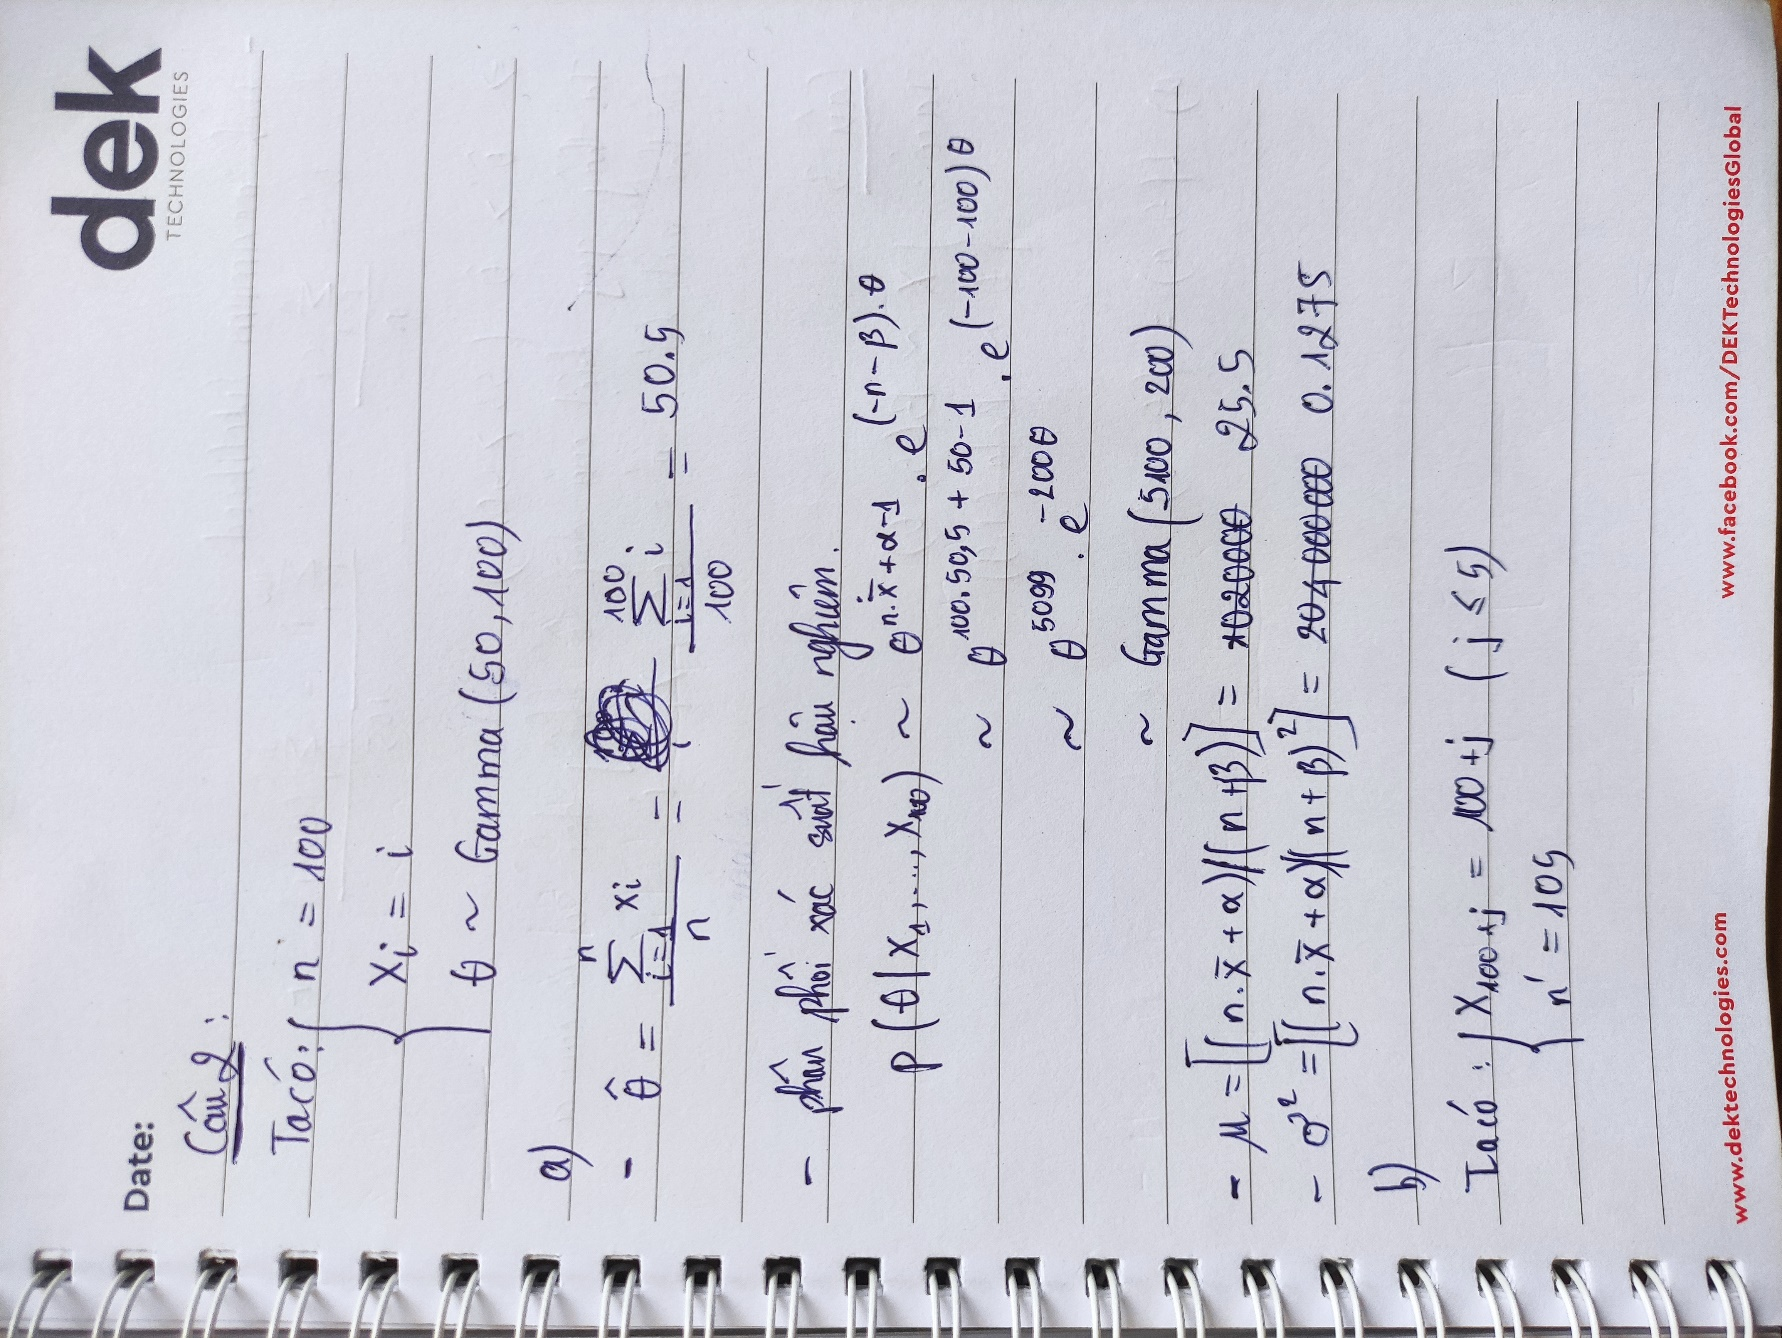 dek
TECHNOLOGIES
Date:
Câu 2:
Ta có: n = 100
Xi = i
θ ~ Gamma (50, 100)
a)
- θ̂ = Σ_{i=1}^{n} xi / n = Σ_{i=1}^{100} i / 100 = 50.5
- phân phối xác suất hậu nghiệm.
P(θ | X1, ..., X100) ~ θ^{n.x̄+α-1} . e^{(-n-β).θ}
~ θ^{100.50,5+50-1} . e^{(-100-100)θ}
~ θ^{5099} . e^{-200θ}
~ Gamma (5100, 200)
- μ = [(n.x̄ + α)/(n+β)] = 1020000 25.5
- σ² = [(n.x̄ + α)/(n+β)²] = 204000000 0.1275
b)
Ta có: X100+j = 100+j (j ≤ 5)
n' = 105
www.dektechnologies.com www.facebook.com/DEKTechnologiesGlobal